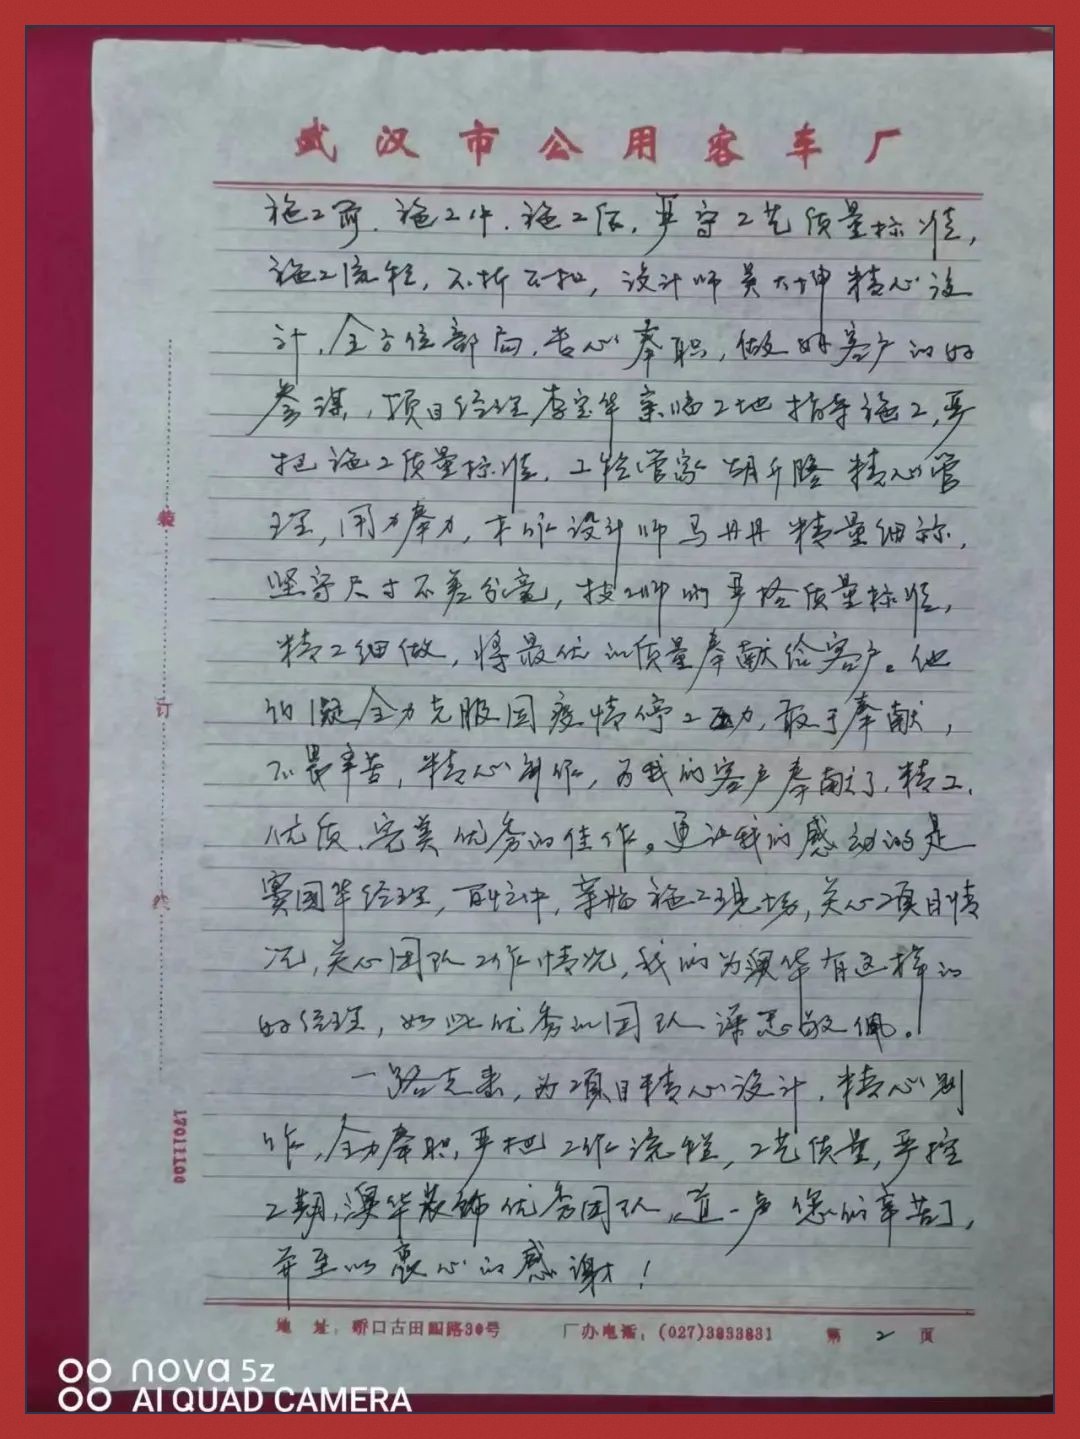 武汉市公用客车厂
施工前、施工中、施工后，严守工艺质量标准，
施工流程，不折不扣，设计师吴大坤精心设
计，全方位部局，尽心奉职，做好客户的好
参谋，项目经理李宝华亲临工地指导施工，严
把施工质量标准，工程管家胡升隆精心管
理，用力奉力，木作设计师马丹丹精量细称，
坚守尺寸不差分毫，技师们严格质量标准，
精工细做，将最优的质量奉献给客户。他
们凝全力克服因疫情停工压力，敢于奉献，
不畏辛苦，精心制作，为我的客户奉献了，精工、
优质、完美优秀的佳作。更让我们感动的是
窦国华经理，百忙中，亲临施工现场，关心项目情
况，关心团队工作情况，我们为澳华有这样的
好经理，如此优秀的团队深感敬佩。
一路走来，为项目精心设计，精心制
作，全力奉职，严把工作流程，工艺质量，严控
工期，澳华装饰优秀团队，道一声您们辛苦了，
并至以衷心的感谢！
装
订
线
17011100
地 址：硚口古田四路30号 厂办电话：(027)3833831 第 2 页
nova 5z
AI QUAD CAMERA